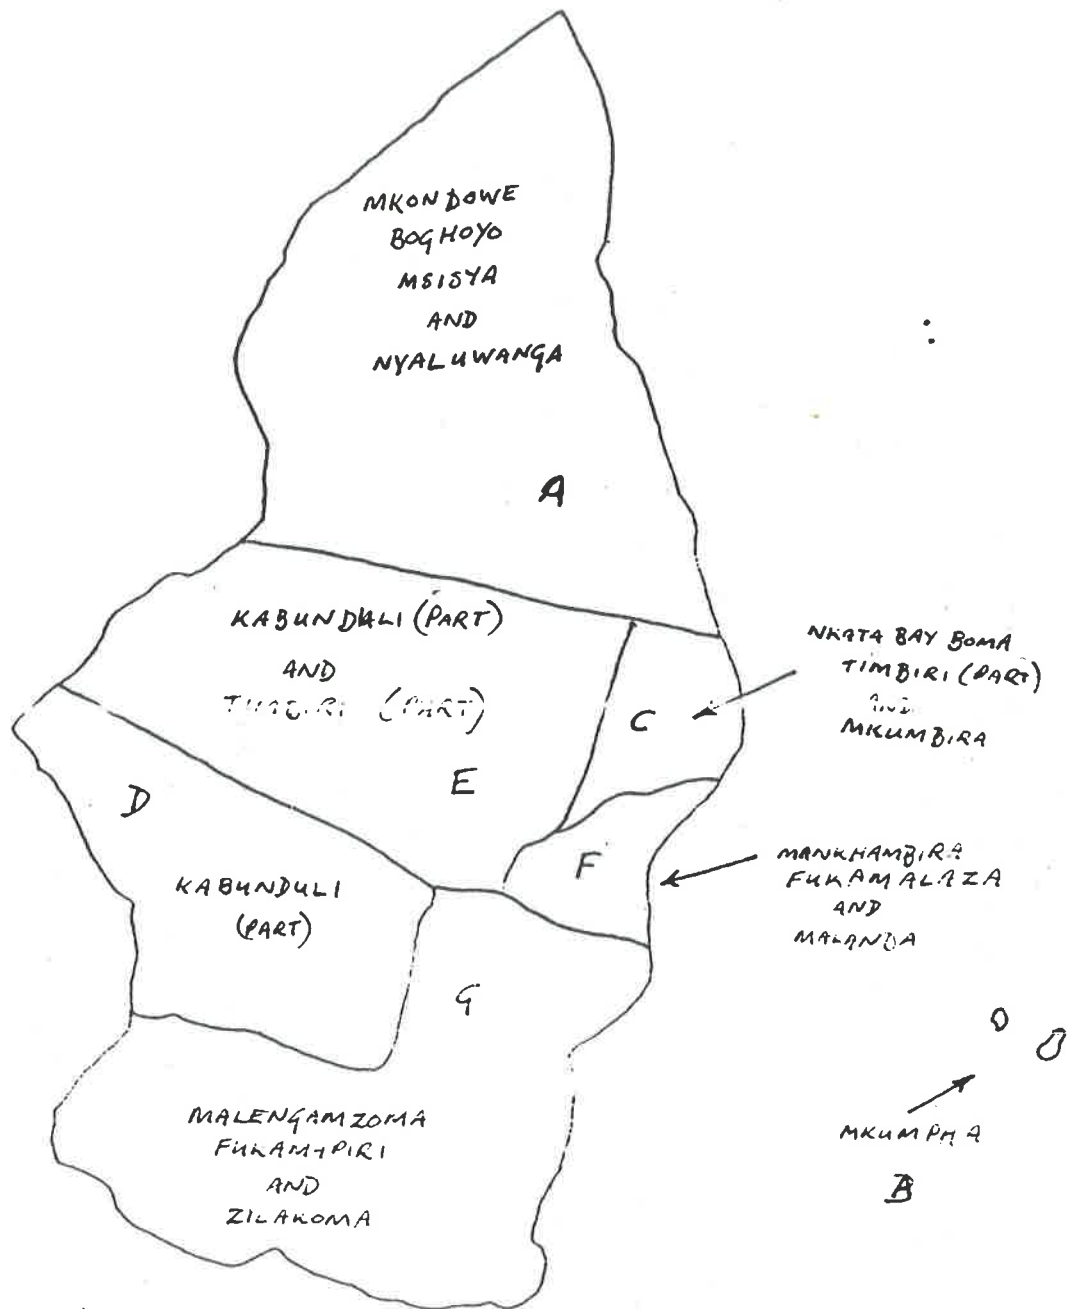 MKONDOWE
BOGHOYO
MSISYA
AND
NYALUWANGA
A
KABUNDULI (PART)
AND
(PART)
E
C
NKATA BAY BOMA
TIMBIRI (PART)
AND
MKUMBIRA
D
KABUNDULI
(PART)
F
MANKHAMBIRA
FUKAMALAZA
AND
MALANDA
G
MALENGAMZOMA
FUKAMAPIRI
AND
ZILAKOMA
MKUMPHA
B